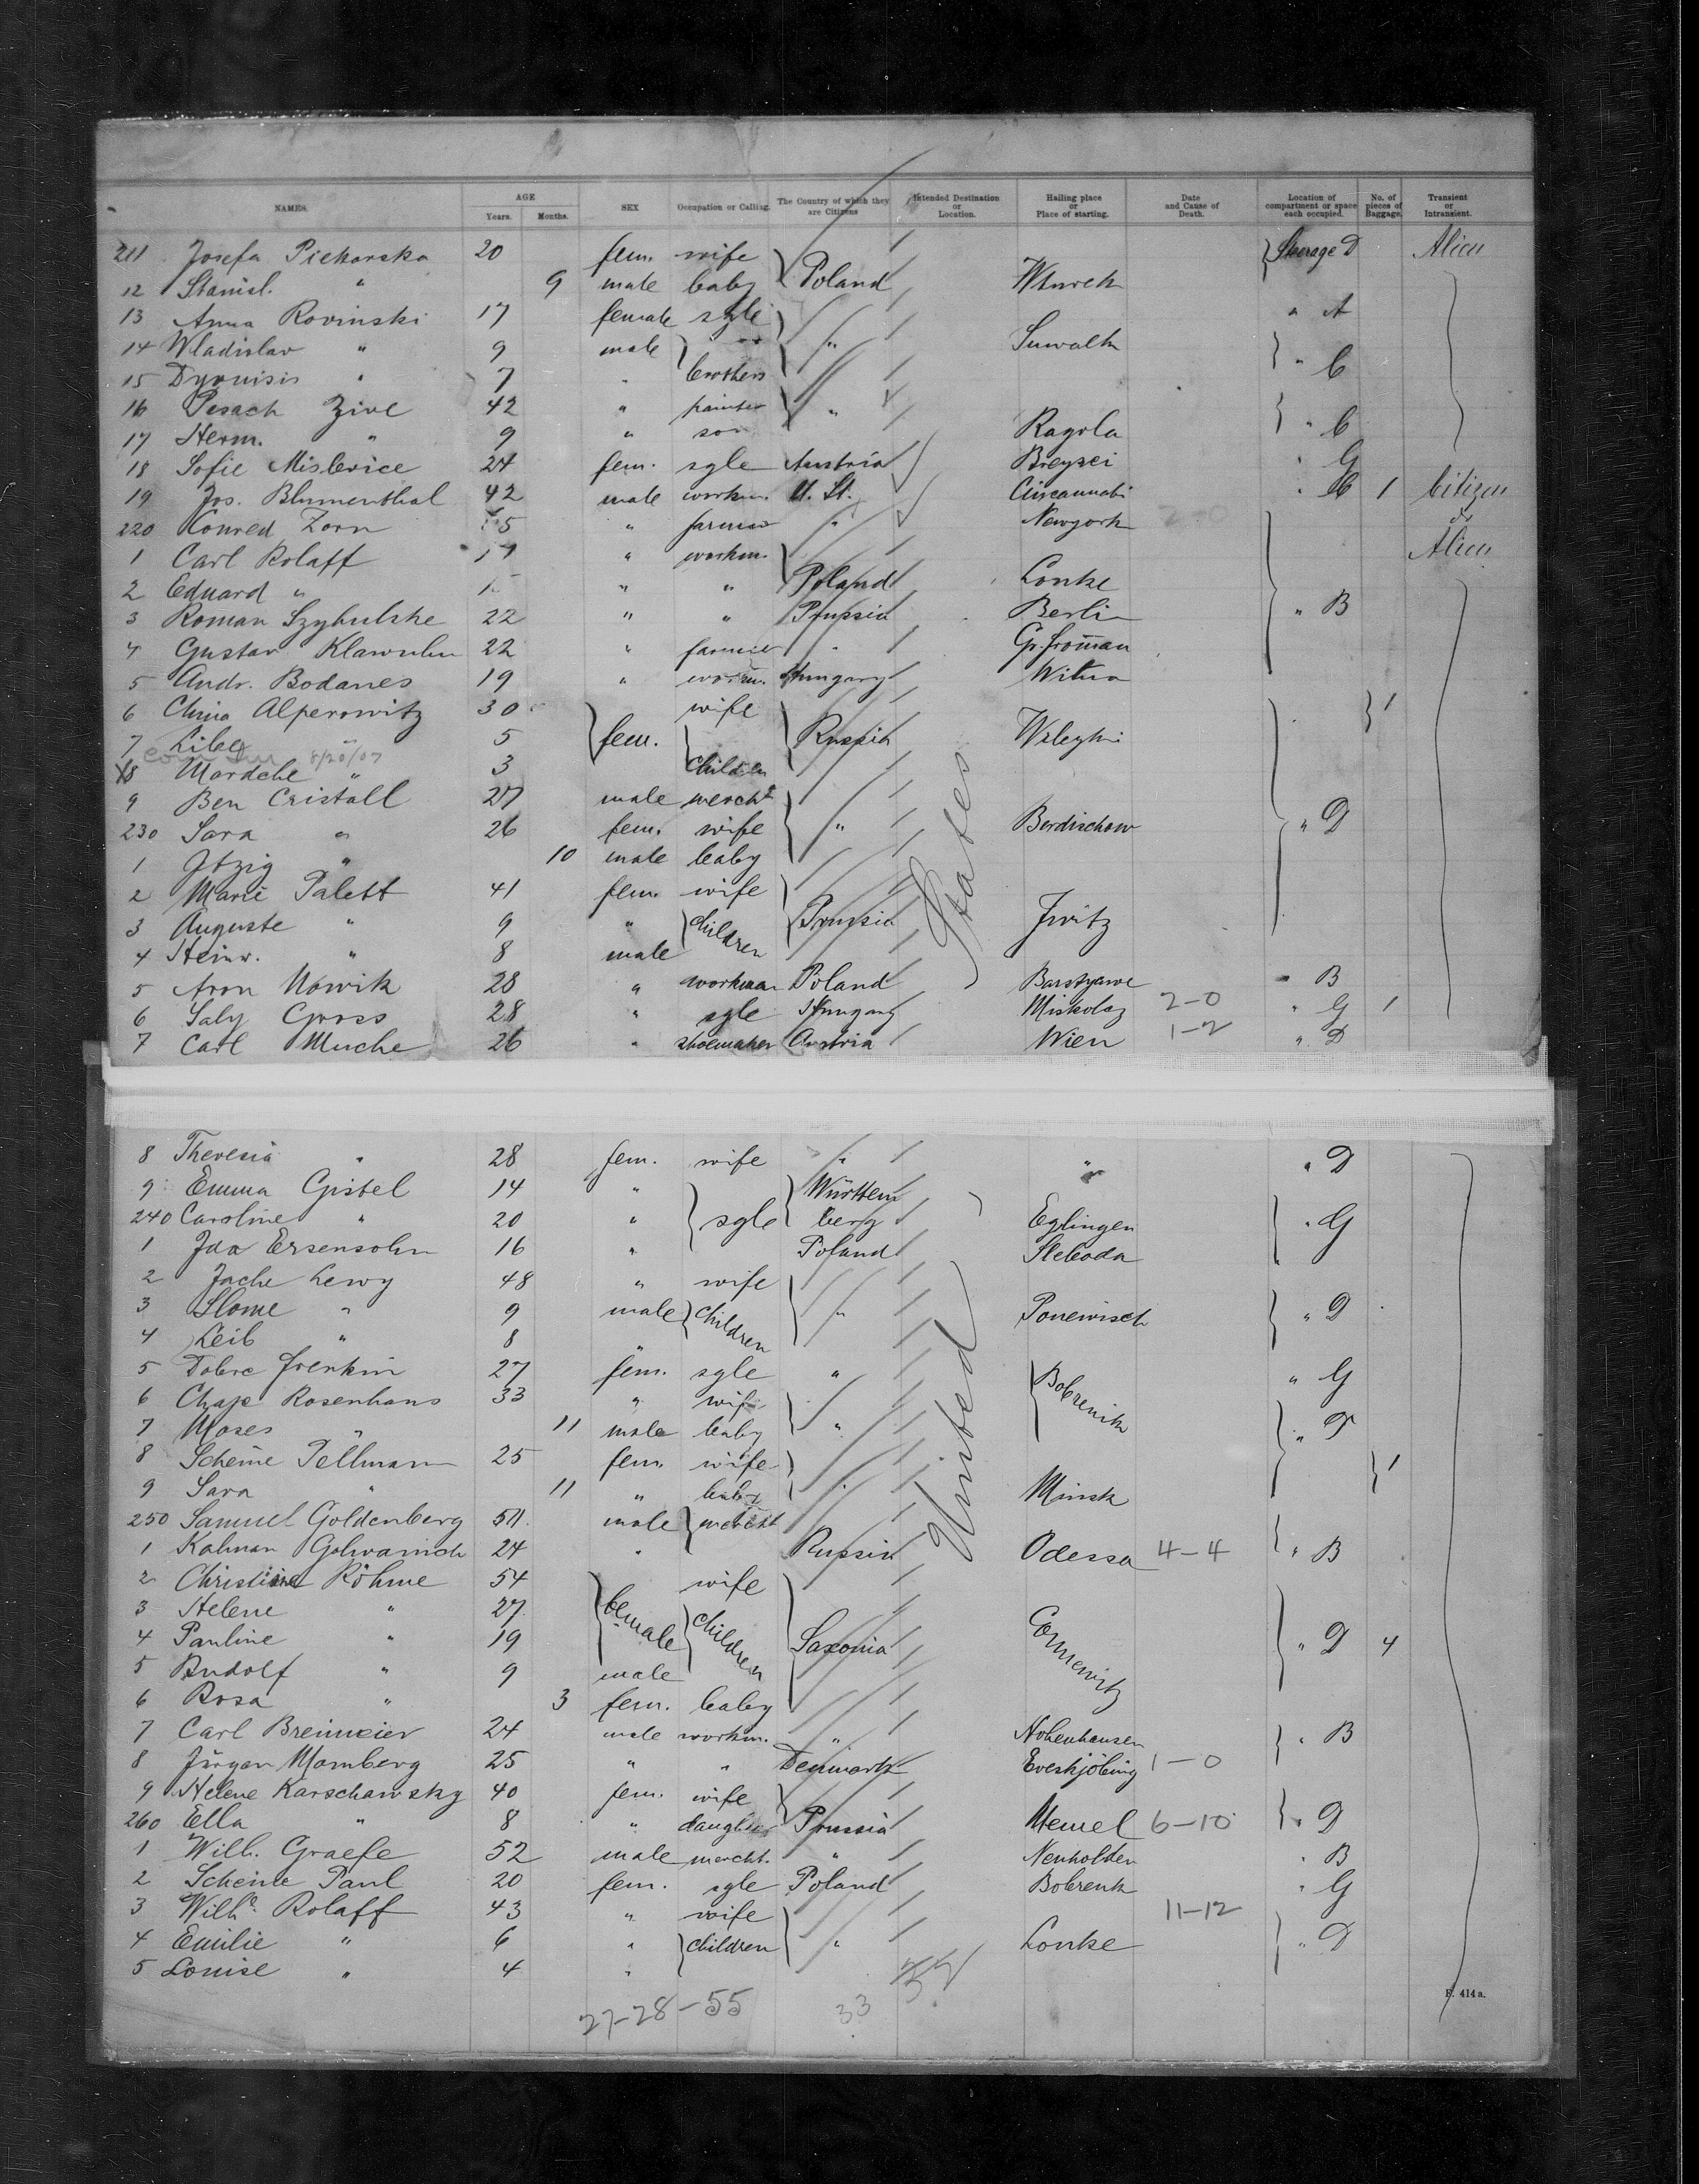 NAMES. AGE Years. Months. SEX Occupation or Calling. The Country of which they are Citizens Intended Destination or Location. Hailing place or Place of starting. Date and Cause of Death. Location of compartment or space each occupied. No. of pieces of Baggage. Transient or Intransient.
211 Josefa Piekarska 20 fem. wife Steerage D Alien
12 Stanisl. " 9 male baby Poland
13 Anna Rovinski 17 female sgle " A
14 Wladislav " 9 male " Suwalk
15 Dyonisis " 7 " brothers " C
16 Pesach Zive 42 " painter "
17 Herm. " 9 " son Ragola " C
18 Sofie Mislerice 24 fem. sgle Austria " G
19 Jos. Blumenthal 42 male workm. U. St. Cincannabi 1 Citizen
220 Konred Zorn " farmer " Newyork &
1 Carl Rolaff " workm. Alien
2 Eduard " " " Poland Lonke
3 Roman Szybulske 22 " " Prussia Berlin " B
4 Gustav 22 " farmer "
5 Andr. Bodanes 19 " Hungary
6 China Alperowitz 30 wife 1
7 Libe " 5 fem. Russia Wileyki
8/20/07
8 Mardche " 3 children
9 Ben Cristall 27 male mercht
230 Sara " 26 fem. wife " Berdischow " D
1 Itzig " 10 male baby
2 Marie Palett 41 fem. wife
3 Auguste " 9 " children Prussia
4 Heinr. " 8 male
5 Aron Nowik 28 " workman Poland B
6 Saly Gross 28 " sgle Hungary Miskolcz 2-0 " G 1
7 Carl Muche 26 " shoemaker Austria Wien 1-2 " D
States
8 Theresia " 28 fem. wife " " " D
9 Emma Gistel 14 " Württem
240 Caroline " 20 " sgle berg Eglingen " G
1 Ida Ersensohn 16 " Poland Sleboda
2 Jache Lewy 48 " wife
3 Slome " 9 male children " Ponewisch " D
4 Leib " 8 "
5 Dobre 27 fem. sgle " " G
6 Chaje Rosenhans 33 " wife Bobrenik
7 Moses " 11 male baby " " D
8 Scheine Pellmann 25 fem. wife 1
9 Sara " 11 " baby " Minsk
250 Samuel Goldenberg male mercht
1 Kalman 24 " Russia Odessa 4-4 " B
2 Christine Röhme 54 wife
3 Helene " 27 female children
4 Pauline " 19 Saxonia " D 4
5 Rudolf " 9 male
6 Rosa " 3 fem. baby
7 Carl Breimeier 24 male workm. " " B
8 Jürgen Momberg 25 " " Denmark 1-0
9 Helene Karschawsky 40 fem. wife
260 Ella " 8 " daughter Prussia Memel 6-10 " D
1 Wilh. Graefe 52 male mercht. " Neuholden " B
2 Scheine Paul 20 fem. sgle Poland Bobrenk " G
3 Wilhe. Rolaff 43 " wife 11-12
4 Emilie " 6 " children " Lonke " D
5 Louise " 4 "
United
27-28-55 33
F. 414 a.